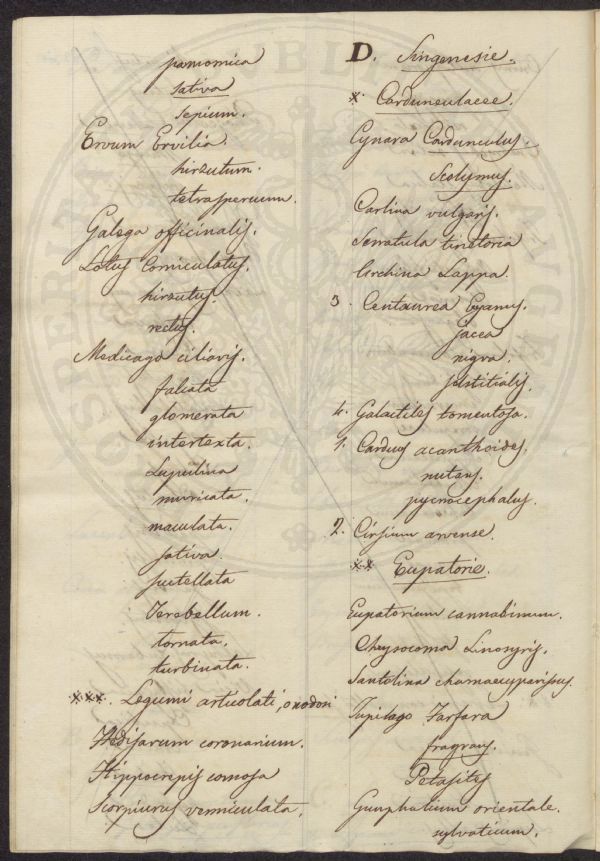 pannonica
sativa
sepium.
Ervum Ervilia.
hirsutum.
tetraspermum.
Galega officinalis.
Lotus Corniculatus.
hirsutus.
rectus.
Medicago ciliaris.
falcata
glomerata
intertexta.
Lupulina
muricata.
maculata.
sativa.
scutellata
Terebellum.
tornata.
turbinata.
***. Legumi articolati, o nodosi
Hedisarum coronarium.
Hippocrepis comosa
Scorpiurus vermiculata.
D. Singenesie.
* Cardunculacee.
Cynara Cardunculus.
Scolymus.
Carlina vulgaris.
Serratula tinctoria
Arctium Lappa.
3. Centaurea Cyanus.
jacea
nigra.
solstitialis.
4. Galactites tomentosa.
1. Carduus acanthoides.
nutans.
pycnocephalus.
2. Cirsium arvense.
** Eupatorie.
Eupatorium cannabinum.
Chrysocoma Linosyris.
Santolina chamaecyparissus.
Tussilago Farfara
fragrans.
Petasites
Gnaphalium orientale.
sylvaticum.